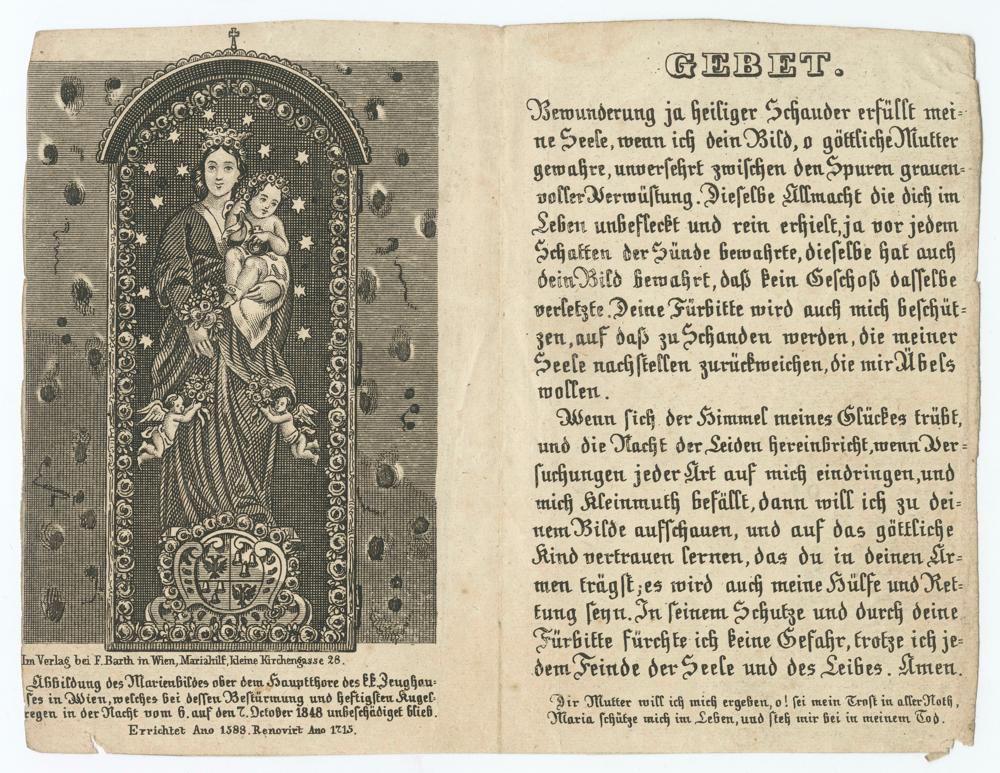 Im Verlag bei F. Barth in Wien, Mariahilf, kleine Kirchengasse 28.
Abbildung des Marienbildes ober dem Hauptthore des k.k. Zeughau=
ses in Wien, welches bei dessen Bestürmung und heftigsten Kugel=
regen in der Nacht vom 6. auf den 7. October 1848 unbeschädiget blieb.
Errichtet Ano 1588. Renovirt Ano 1715.
GEBET.
Bewunderung ja heiliger Schauder erfüllt mei=
ne Seele, wenn ich dein Bild, o göttliche Mutter
gewahre, unversehrt zwischen den Spuren grauen=
voller Verwüstung. Dieselbe Allmacht die dich im
Leben unbefleckt und rein erhielt, ja vor jedem
Schatten der Sünde bewahrte, dieselbe hat auch
dein Bild bewahrt, daß kein Geschoß dasselbe
verletzte. Deine Fürbitte wird auch mich beschüt=
zen, auf daß zu Schanden werden, die meiner
Seele nachstellen zurückweichen, die mir Übels
wollen.
Wenn sich der Himmel meines Glückes trübt,
und die Nacht der Leiden hereinbricht, wenn Ver=
suchungen jeder Art auf mich eindringen, und
mich Kleinmuth befällt, dann will ich zu dei=
nem Bilde aufschauen, und auf das göttliche
Kind vertrauen lernen, das du in deinen Ar=
men trägst; es wird auch meine Hülfe und Ret=
tung seyn. In seinem Schutze und durch deine
Fürbitte fürchte ich keine Gefahr, trotze ich je=
dem Feinde der Seele und des Leibes. Amen.
Dir Mutter will ich mich ergeben, o! sei mein Trost in aller Noth,
Maria schütze mich im Leben, und steh mir bei in meinem Tod.